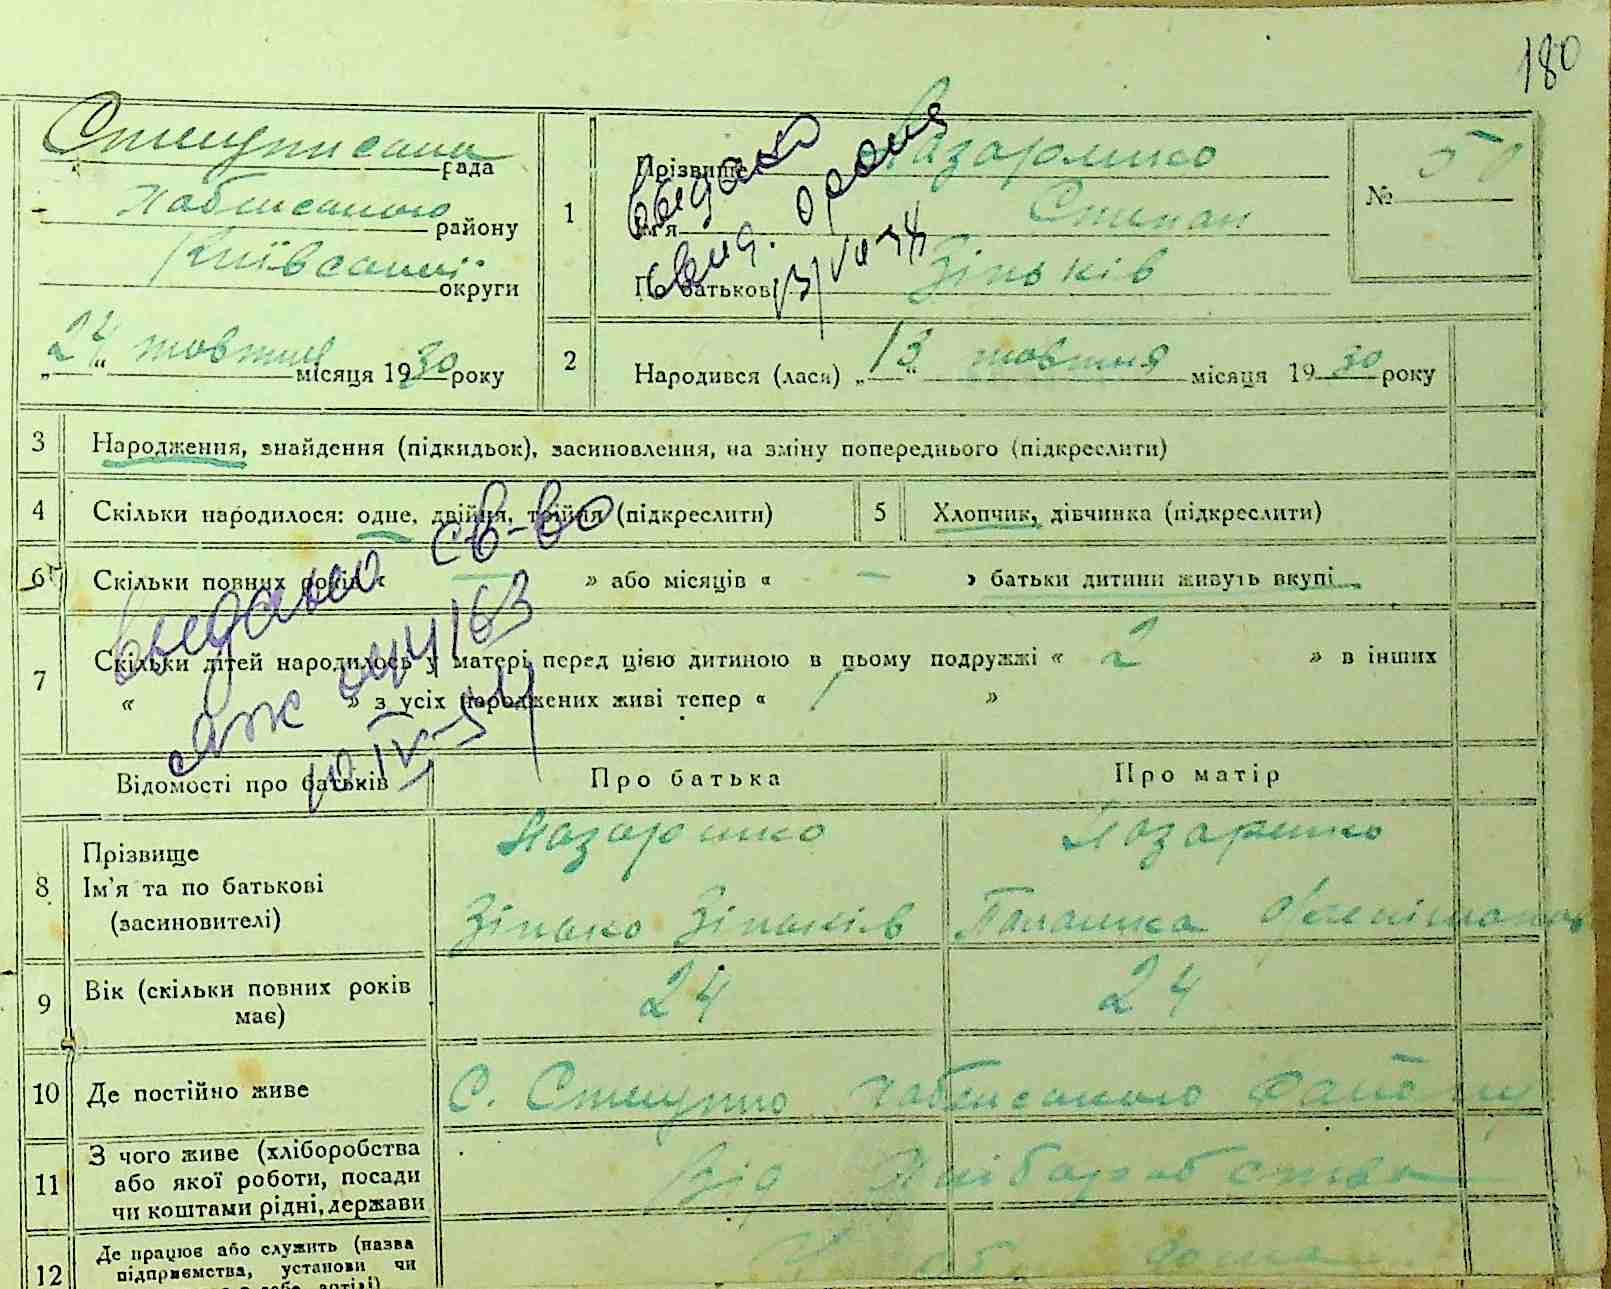 180
рада
району
округи
„24“ жовтня місяця 1930 року
1
Прізвище Назаренко
Ім'я Степан
По батькові Зіньків
№ 50
2
Народився (лася) „13“ жовтня місяця 1930 року
3
Народження, знайдення (підкидьок), засиновлення, на зміну попереднього (підкреслити)
4
Скільки народилося: одне, двійня, трійня (підкреслити)
5
Хлопчик, дівчинка (підкреслити)
6
Скільки повних років « — » або місяців « — » батьки дитини живуть вкупі
7
Скільки дітей народилось у матері перед цією дитиною в цьому подружжі « 2 » в інших
« » з усіх народжених живі тепер « 1 »
выдано св-во
Відомості про батьків
Про батька
Про матір
8
Прізвище
Ім'я та по батькові
(засиновителі)
Назаренко
Зінько Зіньків
Назаренко
9
Вік (скільки повних років
має)
24
24
10
Де постійно живе
С.
району
11
З чого живе (хліборобства
або якої роботи, посади
чи коштами рідні, держави
Від Хліборобства
12
Де працює або служить (назва
підприємства, установи чи